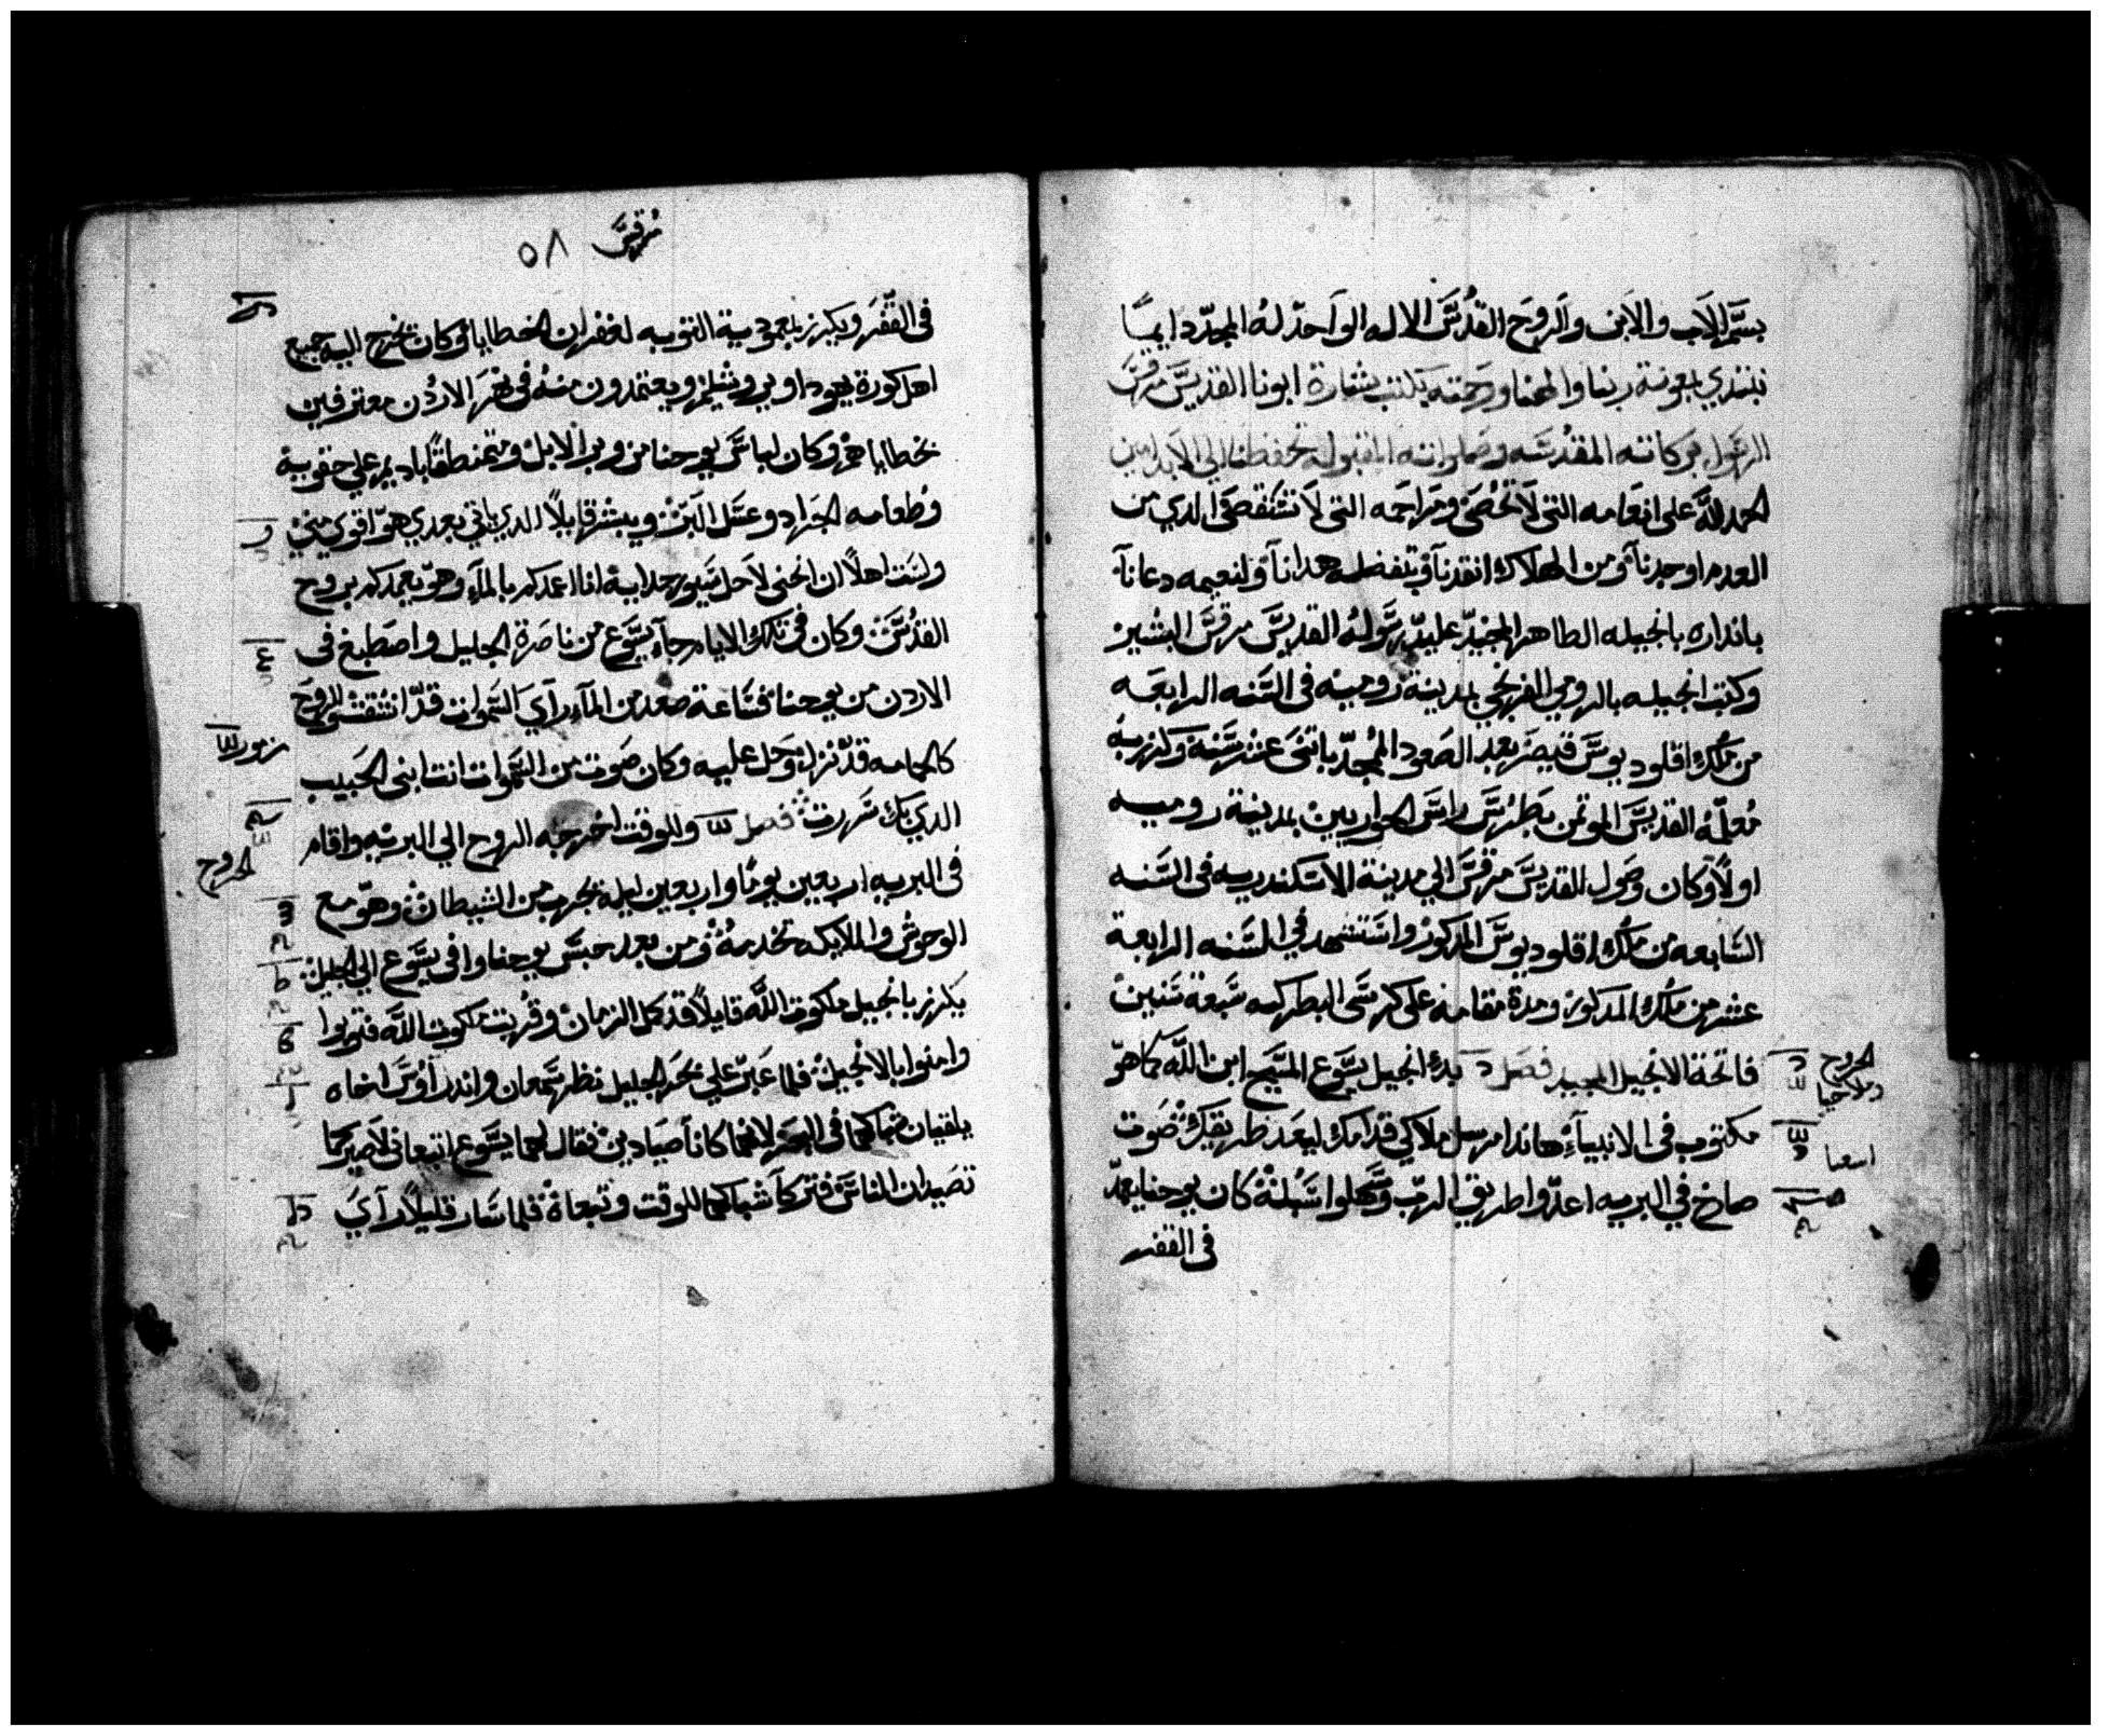 بسم الاب والابن والروح القدس الاله الواحد له المجد دايمًا
نبتدي بمعونة ربنا والهنا ورحمته بكتب بشارة ابونا القديس مرقس
الرسول بركاته المقدسه وصلواته المقبوله تحفظنا الي الابد امين
الحمد لله على انعامه التى لا تحصى ومراحمه التى لا تستقصى الدي من
العدم اوجدنا ومن الهلاك انقدنا وبتفضله هدانا ولنعيمه دعانا
بانداره بانجيله الطاهر المجيد علي يد رسوله القديس مرقس البشير
وكتب انجيله بالرومي الفرنجي بمدينة روميه فى السنه الرابعه
من ملك اقلوديوس قيصر بعد الصعود المجد باتنى عشر سنة وكرز به
معلمه القديس الموتمن بطرس راس الحواريين بمدينة روميه
اولًا وكان وصول القديس مرقس الي مدينة الاسكندريه فى السنه
السابعه من ملك اقلوديوس المدكور واستشهد في السنه الرابعة
عشر من ملك المدكور ومدة مقامه على كرسى البطركيه سبعة سنين
فاتحة الانجيل المجيد فصل بدء انجيل يسوع المسيح ابن الله كما هو
مكتوب فى الانبياء هاندا مرسل ملاكي قدامك ليعد طريقك صوت
صارخ في البريه اعدوا طريق الرب وسهلوا سبله كان يوحنا يعمد
فى القفر
الخروج
وملاخيا
اسعيا
مرقس ٥٨
فى القفر ويكرز بمعمودية التوبه لغفران الخطايا وكان تخرج اليه جميع
اهل كورة يهودا ويروشليم ويعتمدون منه فى نهر الاردن معترفين
بخطاياهم وكان لباس يوحنا من وبر الابل ومتمنطقًا باديم علي حقويه
وطعامه الجراد وعسل البر وبشر قايلًا الدي ياتي بعدي هو اقوي مني
ولست اهلًا ان انحنى لاحل سيور حدايه انا اعمدكم بالماء وهو يعمدكم بروح
القدس وكان فى تلك الايام جاء يسوع من ناصرة الجليل واصطبغ فى
الاردن من يوحنا فساعة صعد من الماء رآي السموات قد انشقت والروح
كالحمامه قد نزل وحل عليه وكان صوت من السموات انت ابنى الحبيب
الدي بك سررت فصل وللوقت اخرجه الروح الي البريه واقام
فى البريه اربعين يومًا واربعين ليله يجرب من الشيطان وهو مع
الوحوش والملايكه تخدمه ومن بعد حبس يوحنا وافى يسوع الي الجليل
يكرز بانجيل ملكوت الله قايلًا قد كمل الزمان وقربت ملكوت الله فتوبوا
وامنوا بالانجيل فلما عبر علي بحر الجليل نظر سمعان واندراوس اخاه
يلقيان شباكهما فى البحر لانهما كانا صيادين فقال لهما يسوع اتبعانى لاصيركما
تصيدان الناس فتركا شباكهما للوقت وتبعاه فلما سار قليلًا رآي
مزمور
الخروج